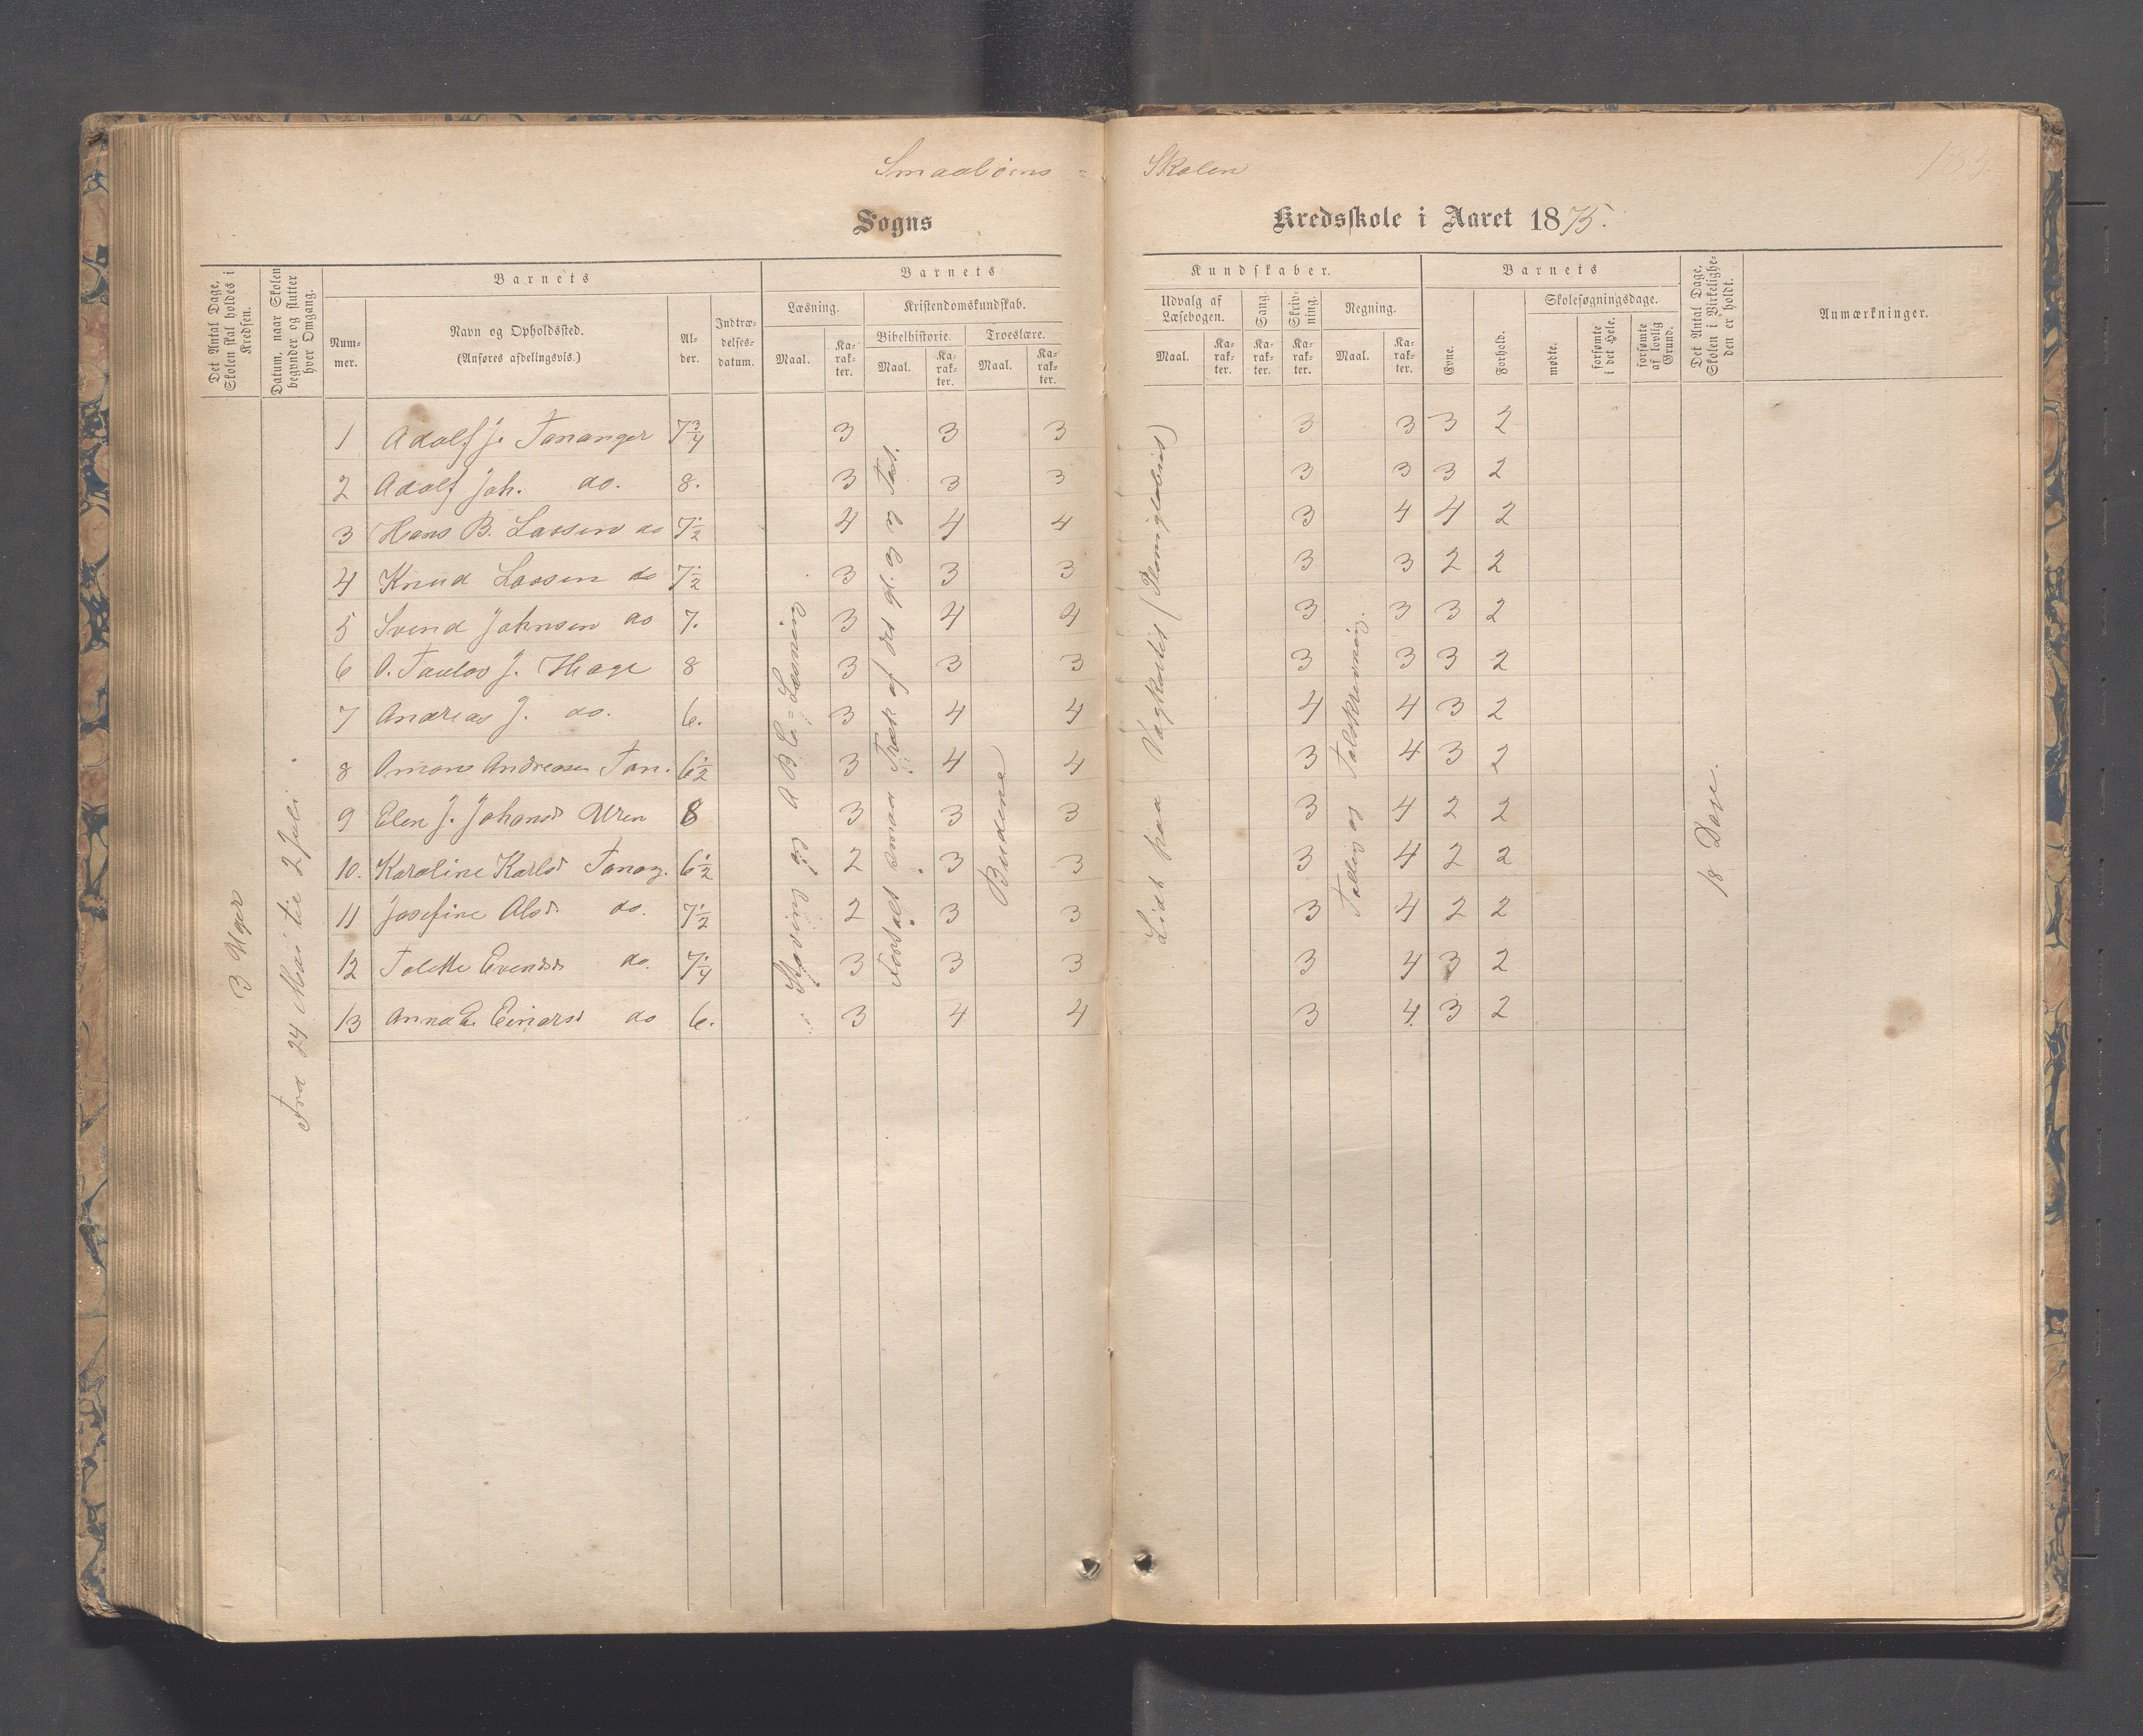 Smaabørns - Skolen
Sogns Kredsskole i Aaret 1875.
Det Antal Dage, Skolen skal holdes i Kredsen.
Datum, naar Skolen begynder og slutter hver Omgang.
Barnets
Nummer.
Navn og Opholdssted.
(Anføres afdelingsvis.)
Alder.
Indtrædelsesdatum.
Barnets
Læsning.
Maal.
Karakter.
Kristendomskundskab.
Bibelhistorie.
Maal.
Karakter.
Troeslære.
Maal.
Karakter.
Kundskaber.
Udvalg af Læsebogen.
Maal.
Karakter.
Sang.
Karakter.
Skrivning.
Karakter.
Regning.
Maal.
Karakter.
Barnets
Evne.
Forhold.
Skolesøgningsdage.
mødte.
forsømte i det Hele.
forsømte af lovlig Grund.
Det Antal Dage, Skolen i Virkeligheden er holdt.
Anmærkninger.
3 Uger
Fra 24 Mai til 2 Juli
Stavning og A B C = Læsning
smaa Træk af det gl. og ny Test.
Budene
Lidt paa
Talskrivning.
18 Dage.
1 Adolf J. Tananger 7 3/4 3 3 3 3 3 3 2
2 Adolf Joh. do. 8. 3 3 3 3 3 3 2
3 Hans B. Lassen do 7 1/2 4 4 4 3 4 4 2
4 Knud Lassen do 7 1/2 3 3 3 3 3 2 2
5 Svend Johnsen do 7. 3 4 4 3 3 3 2
6 O. Taulov J. Hage 8 3 3 3 3 3 3 2
7 Andreas J. do. 6. 3 4 4 4 4 3 2
8 Omans Andreasen Tan. 6 1/2 3 4 4 3 4 3 2
9 Elen J. Johansd. 8 3 3 3 3 4 2 2
10. Karoline Karlsd. Tanag. 6 1/2 2 3 3 3 4 2 2
11 Josefine Olsd. do. 7 1/2 2 3 3 3 4 2 2
12 Talette Evensd. do. 7 1/4 3 3 3 3 4 3 2
13 Anna E. Einarsd do 6. 3 4 4 3 4. 3 2